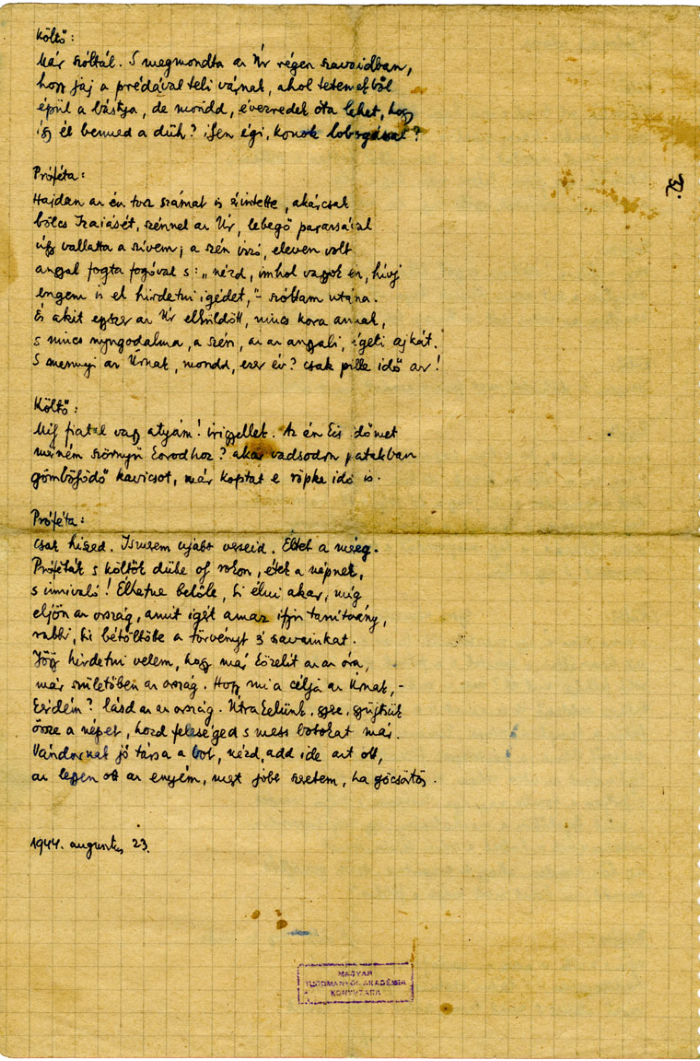 Költő:
Már szóltál. S megmondta az Úr régen szavaidban,
hogy jaj a prédával teli várnak, ahol tetemekből
épül a bástya, de mondd, évezredek óta lehet, hogy
így él benned a düh? ilyen égi, konok lobogással?
Próféta:
Hajdan az én torz számat is érintette, akárcsak
bölcs Izaiásét, szénnel az Úr, lebegő parazsával
úgy vallatta a szívem; a szén izzó, eleven volt
angyal fogta fogóval s: „nézd, imhol vagyok én, hívj
engem is el hirdetni igédet," – szóltam utána.
És akit egyszer az Úr elküldött, nincs kora annak,
s nincs nyugodalma, a szén, az az angyali, égeti ajkát.
S mennyi az Úrnak, mondd, ezer év? csak pille idő az!
Költő:
Mily fiatal vagy atyám! irigyellek. Az én kis időmet
mérném szörnyű korodhoz? akár vadsodru patakban
gömbölyödő kavicsot, már koptat e röpke idő is.
Próféta:
Csak hiszed. Ismerem ujabb verseid. Éltet a méreg.
Próféták s költők dühe oly rokon, étek a népnek,
s innivaló! Élhetne belőle, ki élni akar, míg
eljön az ország, amit igért amaz ifju tanítvány,
rabbi, ki bétöltötte a törvényt s szavainkat.
Jöjj hirdetni velem, hogy már közelít az az óra,
már születőben az ország. Hogy mi a célja az Úrnak, –
kérdém? lásd az az ország. Útrakelünk, gyere, gyüjtsük
össze a népet, hozd feleséged s mess botokat már.
Vándornak jó társa a bot, nézd, add ide azt ott,
az legyen ott az enyém, mert jobb szeretem, ha göcsörtös.
1944. augusztus 23.
MAGYAR
TUDOMÁNYOS AKADÉMIA
KÖNYVTÁRA